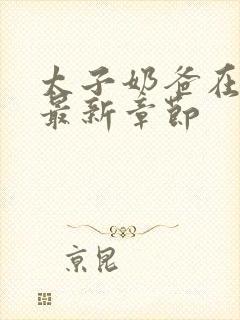 太子奶爸在
最新章节
京昆